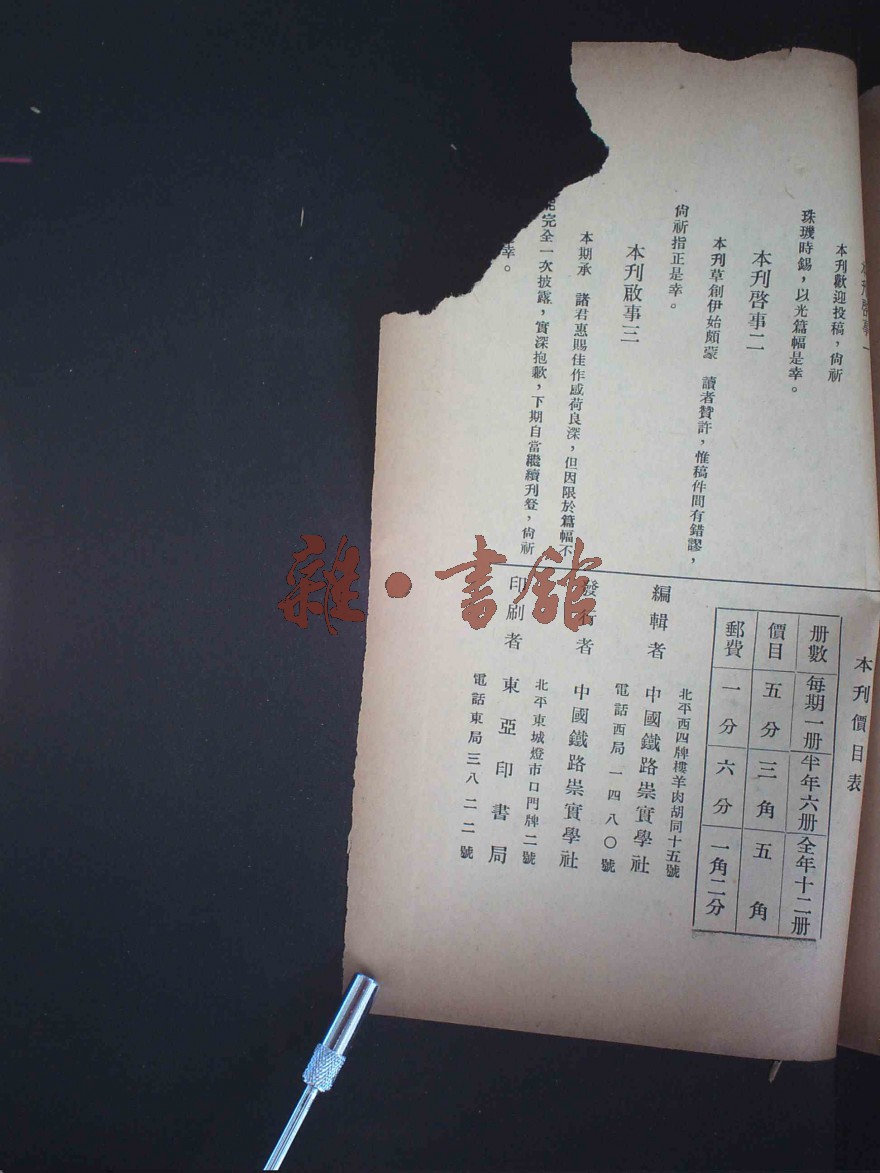 本刊啓事一
本刊歡迎投稿，尙祈
珠璣時錫，以光篇幅是幸。
本刊啓事二
本刊草創伊始頗蒙　讀者贊許，惟稿件間有錯謬，
尙祈指正是幸。
本刊啟事三
本期承　諸君惠賜佳作感荷良深，但因限於篇幅不
能完全一次披露，實深抱歉，下期自當繼續刊登，尙祈
幸。
本刊價目表
册數　每期一册　半年六册　全年十二册
價目　五分　三角　五角
郵費　一分　六分　一角二分
北平西四牌樓羊肉胡同十五號
編輯者　中國鐵路崇實學社
電話西局一四八〇號
發行者　中國鐵路崇實學社
北平東城燈市口門牌二號
印刷者　東亞印書局
電話東局三八二二號
雜·書館